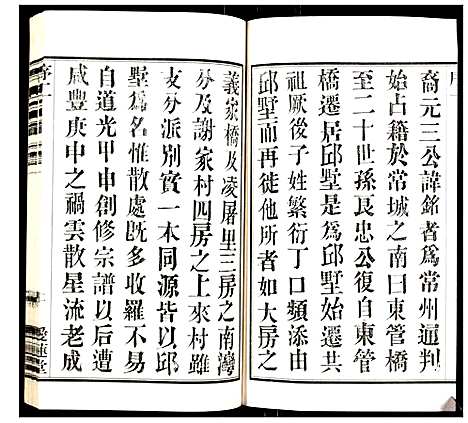 裔元三公諱銘者爲常州通判
始占籍於常城之南曰東管橋
至二十世孫艮忠公復自東管
橋遷居邱墅是爲邱墅始遷共
祖厥後子姓繁衍丁口頻添由
邱墅而再徙他所者如大房之
義家橋及凌屠里三房之南灣
分及謝家村四房之上來村雖
支分派別實一本同源皆以邱
墅爲名惟散處旣多收羅不易
自道光甲申創修宗譜以後遭
咸豐庚申之禍雲散星流老成
序
二
愛蓮堂